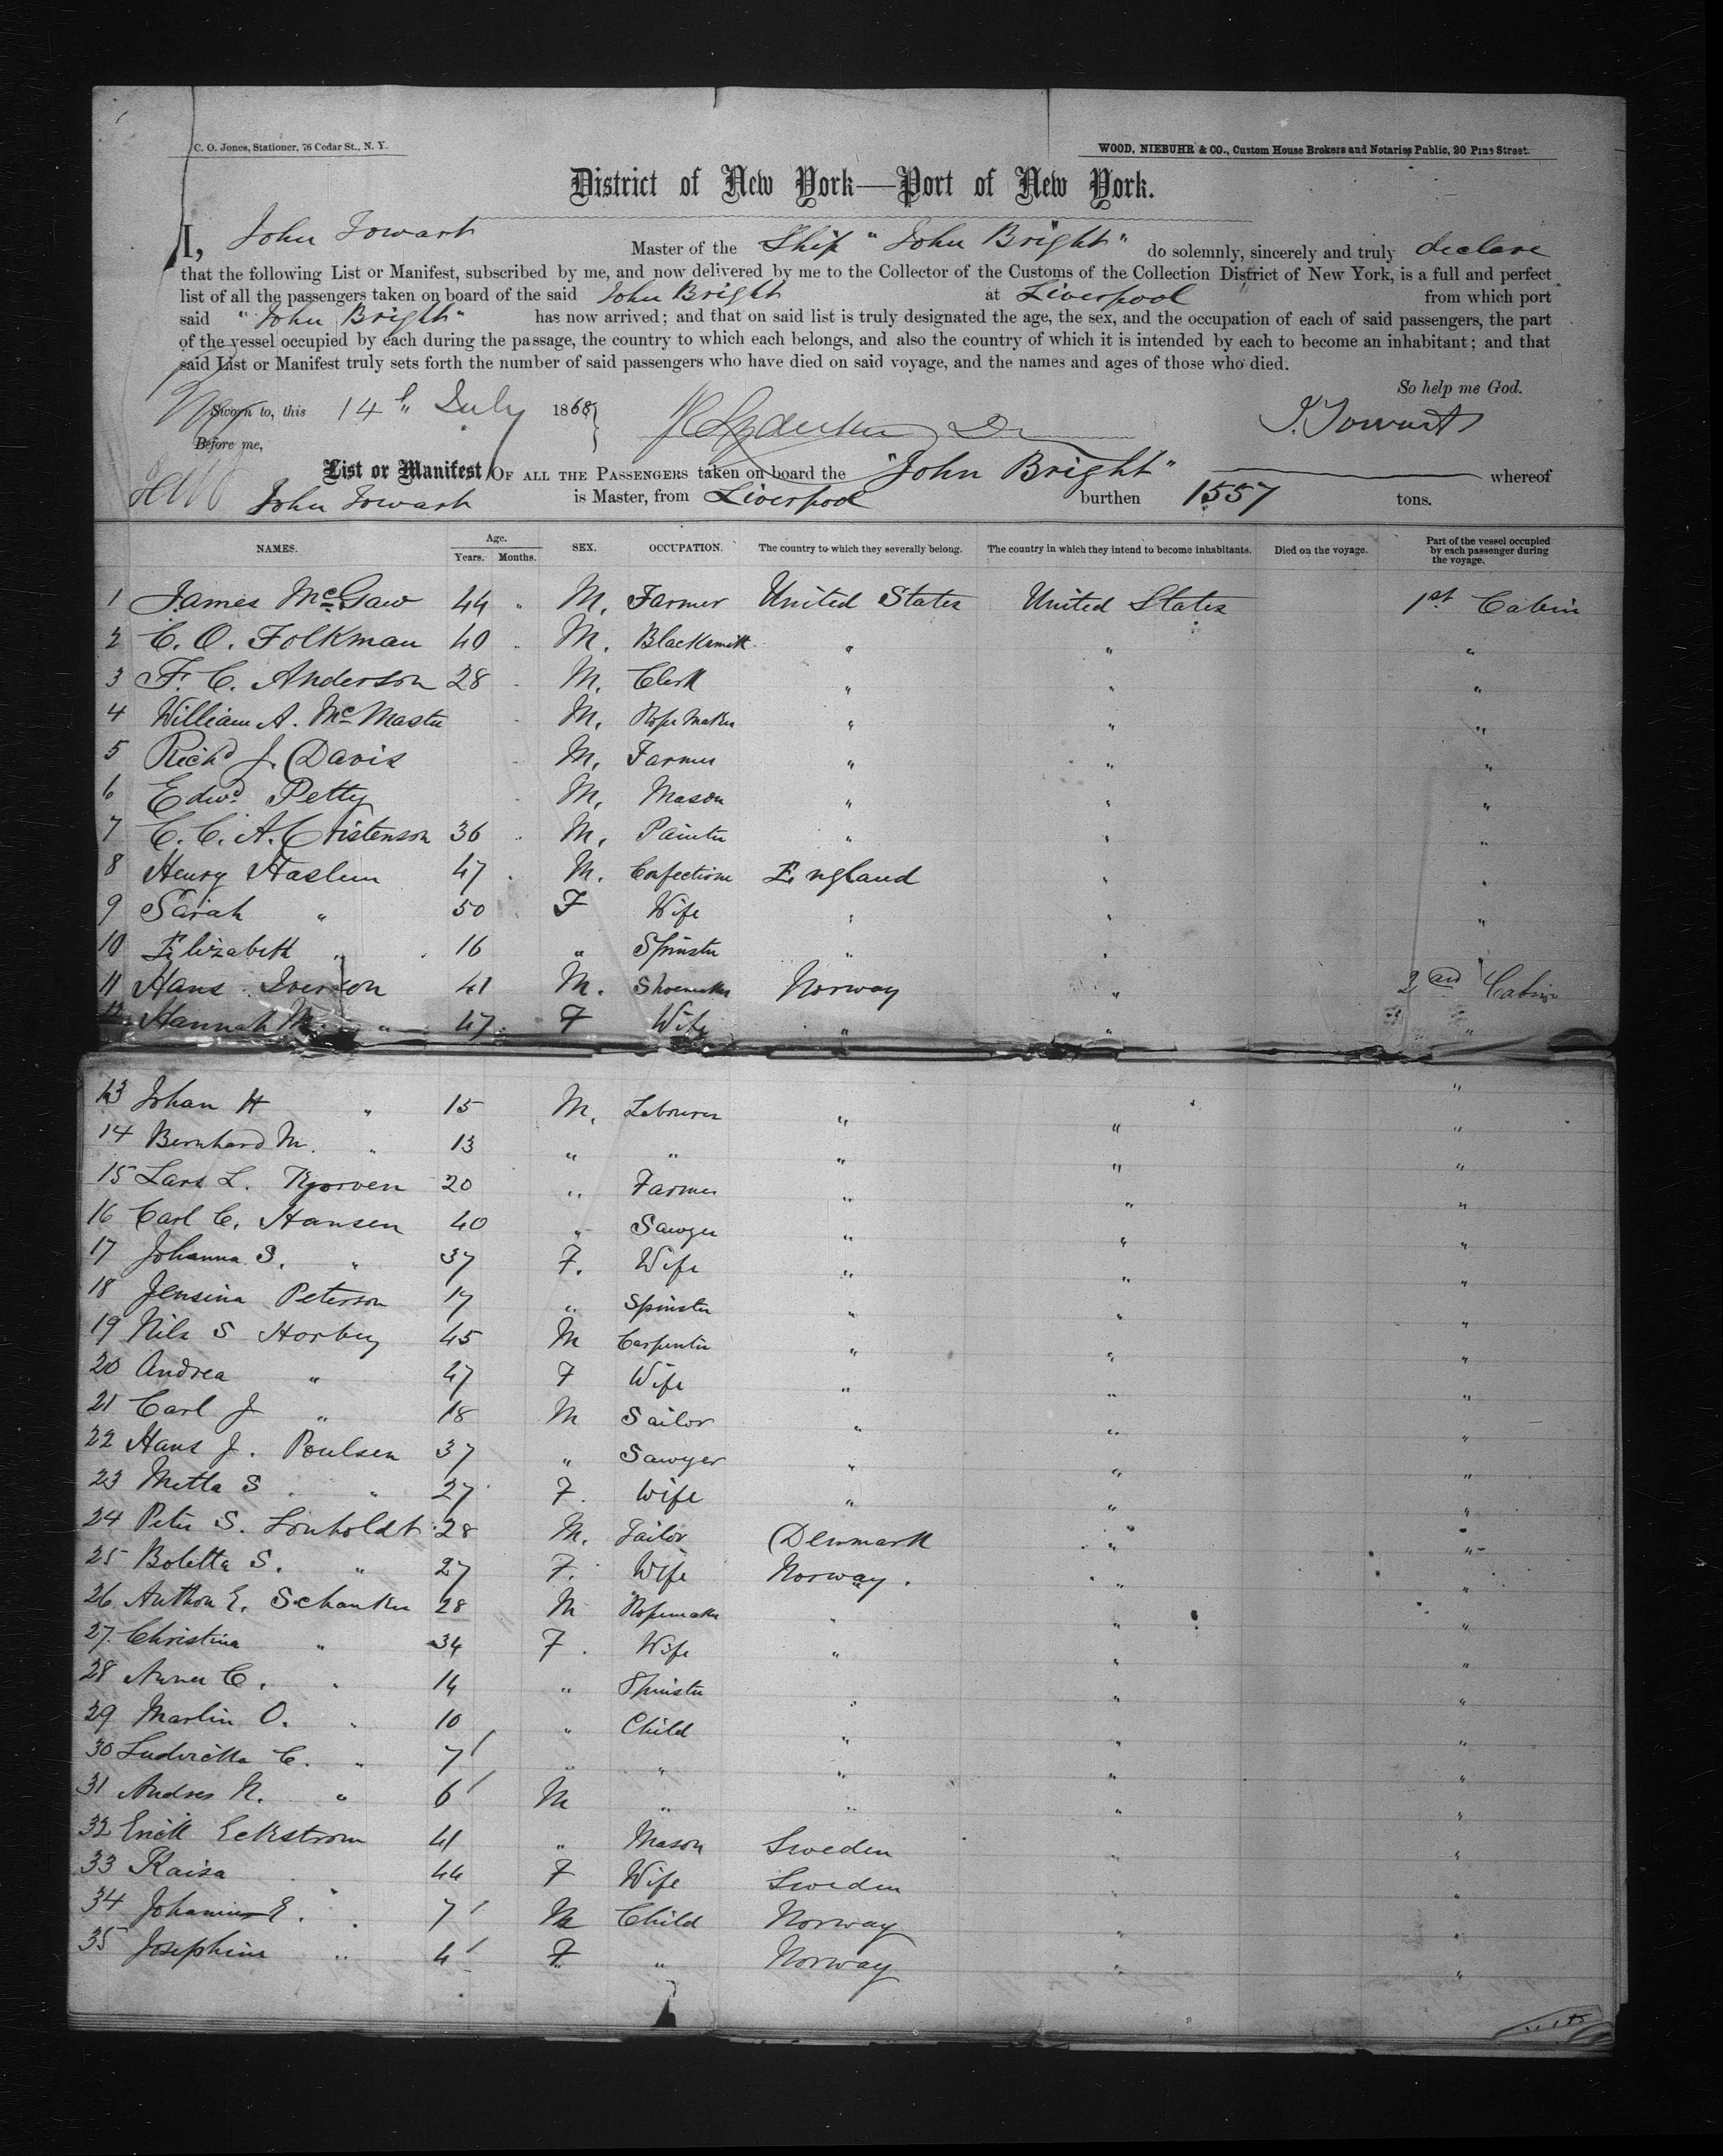 C. O. Jones, Stationer, 76 Cedar St., N. Y.
WOOD, NIEBUHR & CO., Custom House Brokers and Notaries Public, 20 Pine Street.
District of New York—Port of New York.
I, John Towart Master of the Ship "John Bright" do solemnly, sincerely and truly declare
that the following List or Manifest, subscribed by me, and now delivered by me to the Collector of the Customs of the Collection District of New York, is a full and perfect
list of all the passengers taken on board of the said John Bright at Liverpool from which port
said "John Bright" has now arrived; and that on said list is truly designated the age, the sex, and the occupation of each of said passengers, the part
of the vessel occupied by each during the passage, the country to which each belongs, and also the country of which it is intended by each to become an inhabitant; and that
said List or Manifest truly sets forth the number of said passengers who have died on said voyage, and the names and ages of those who died.
So help me God.
Sworn to, this 14th July 1868 J. Towart
Before me,
List or Manifest OF ALL THE PASSENGERS taken on board the "John Bright" whereof
John Towart is Master, from Liverpool burthen 1557 tons.
NAMES. Age. Years. Months. SEX. OCCUPATION. The country to which they severally belong. The country in which they intend to become inhabitants. Died on the voyage. Part of the vessel occupied by each passenger during the voyage.
1 James McGaw 44 " M. Farmer United States United States 1st Cabin
2 C. O. Folkman 40 " M. Blacksmith " " "
3 F. C. Anderson 28 " M. Clerk " " "
4 William A. McMaster " M. Rope Maker " " "
5 Richd J. Davis " M. Farmer " " "
6 Edwd Petty " M. Mason " " "
7 C. C. A. Christenson 36 " M. Painter " " "
8 Henry Haslem 47 " M. Confectioner England " "
9 Sarah " 50 F Wife " " "
10 Elizabeth " 16 " Spinster " "
11 Hans Iverson 41 M. Shoemaker Norway " 2nd Cabin
12 Hannah M. " 47 F Wife " " "
13 Johan H " 15 M. Labourer " " "
14 Bernhard M. " 13 " " " " "
15 Lars L. 20 " Farmer " " "
16 Carl C. Hansen 40 " Sawyer " " "
17 Johanna S. " 37 F. Wife " " "
18 Jensina Peterson 17 " Spinster " " "
19 Nils S Horby 45 M Carpenter " " "
20 Andrea " 47 F Wife " " "
21 Carl J " 18 M Sailor " " "
22 Hans J. Poulsen 37 " Sawyer " " "
23 Metta S. " 27 F. Wife " " "
24 Peter S. Lonholdt 28 M. Tailor Denmark " "
25 Boletta S. " 27 F. Wife Norway. " "
26 Anthon E. Schanker 28 M Ropemaker " " "
27 Christina " 34 F. Wife " " "
28 C. " 14 " Spinster " " "
29 Marlin O. " 10 " Child " " "
30 Ludvikka C. " 7 " " " " "
31 Andres N. " 6 M " " " "
32 Erick Eckstrom 41 " Mason Sweden " "
33 Kaisa " 44 F Wife Sweden " "
34 E. " 7 M Child Norway " "
35 Josephine " 4 F " Norway " "